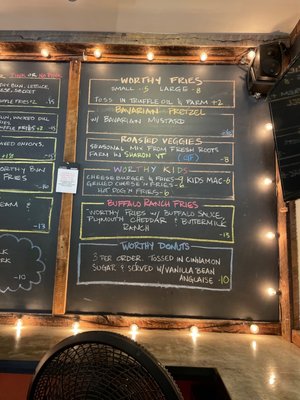 PINK OR NO PINK
BUN, LETTUCE,
FRIES -15
+2
ONIONS,
+1.5
WORTHY BUN
FRIES
-10
EAM &
-13
WORTHY FRIES
SMALL -5 LARGE -8
TOSS IN TRUFFLE OIL & PARM +2
BAVARIAN PRETZEL
W/ BAVARIAN MUSTARD
ROASTED VEGGIES
SEASONAL MIX FROM FRESH ROOTS
FARM IN SHARON VT (GF) -8
WORTHY KIDS
CHEESE BURGER & FRIES -9 KIDS MAC -6
GRILLED CHEESE N' FRIES -8
HOT DOG N' FRIES -6
BUFFALO RANCH FRIES
WORTHY FRIES W/ BUFFALO SAUCE,
PLYMOUTH CHEDDAR & BUTTERMILK
RANCH -13
WORTHY DONUTS
3 PER ORDER. TOSSED IN CINNAMON
SUGAR & SERVED W/ VANILLA BEAN
ANGLAISE -10